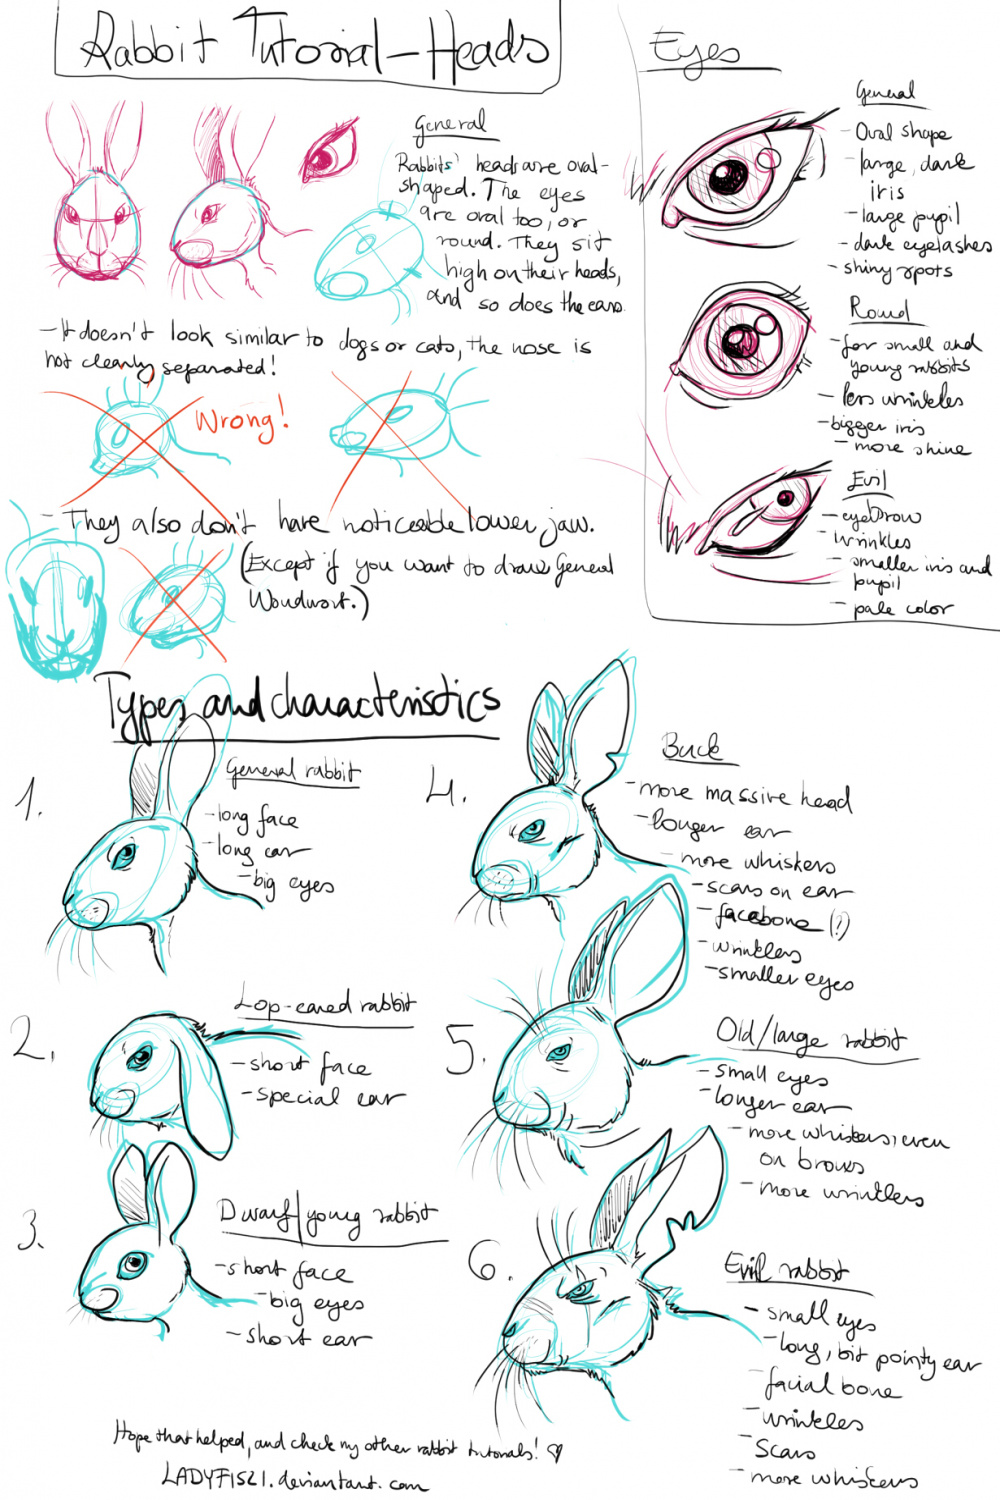 Rabbit Tutorial-Heads
General
Rabbits' heads are oval-
shaped. The eyes
are oval too, or
round. They sit
high on their heads,
and so does the ears.
-It doesn't look similar to dogs or cats, the nose is
not clearly separated!
Wrong!
- They also don't have noticeable lower jaw.
(Except if you want to draw General
Woundwort.)
Eyes
General
- Oval shape
- large, dark
iris
- large pupil
- dark eyelashes
- shiny spots
Round
- for small and
young rabbits
- less wrinkles
- bigger iris
- more shine
Evil
- eyebrow
- wrinkles
- smaller iris and
pupil
- pale color
Types and characteristics
1.
General rabbit
- long face
- long ear
- big eyes
2.
Lop-eared rabbit
- short face
- special ear
3.
Dwarf/young rabbit
- short face
- big eyes
- short ear
4.
Buck
- more massive head
- longer ear
- more whiskers
- scars on ear
- facebone (?)
- wrinkles
- smaller eyes
5.
Old/large rabbit
- small eyes
- longer ear
- more whiskers, even
on brows
- more wrinklers
6.
Evil rabbit
- small eyes
- long, bit pointy ear
- facial bone
- wrinkles
- Scars
- more whiskers
Hope that helped, and check my other rabbit tutorials! ♡
LADYFISZI.deviantart.com